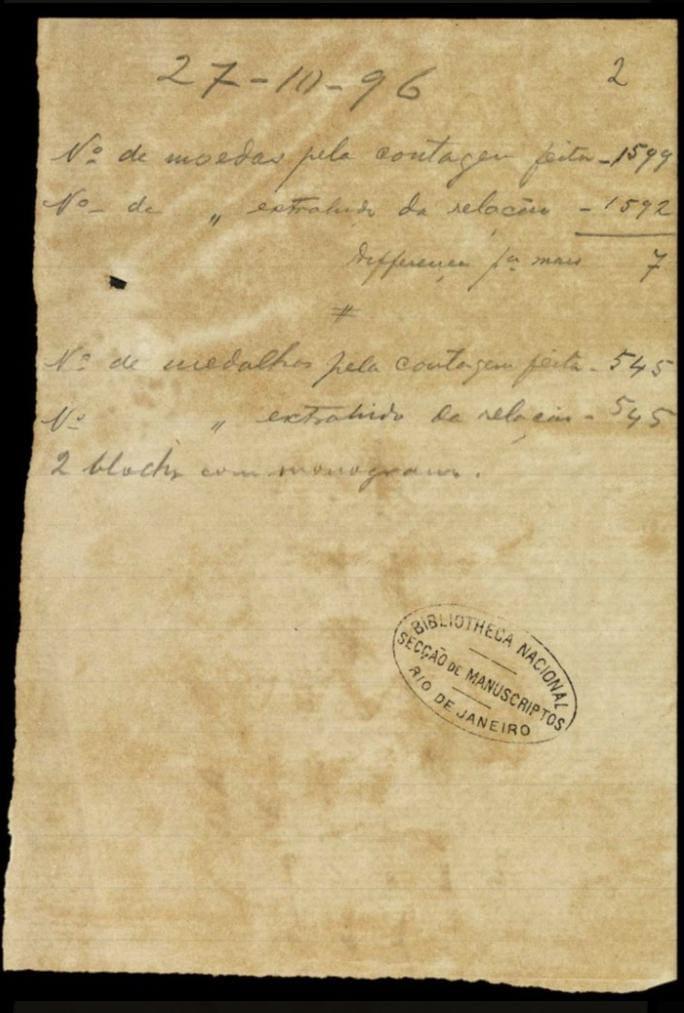 27-III-96
2
Nº de moedas pela contagem feita - 1599
Nº de " extrahido da relação - 1592
Differença pª mais 7
#
Nº de medalhas pela contagem feita - 545
Nº " extrahido da relação - 545
2 blocks com monogramas.
BIBLIOTHECA NACIONAL
SECÇÃO DE MANUSCRIPTOS
RIO DE JANEIRO